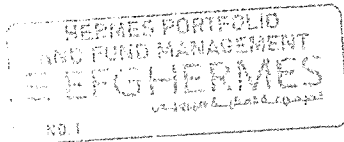 HERMES PORTFOLIO
AND FUND MANAGEMENT
EFG HERMES
NO. 1